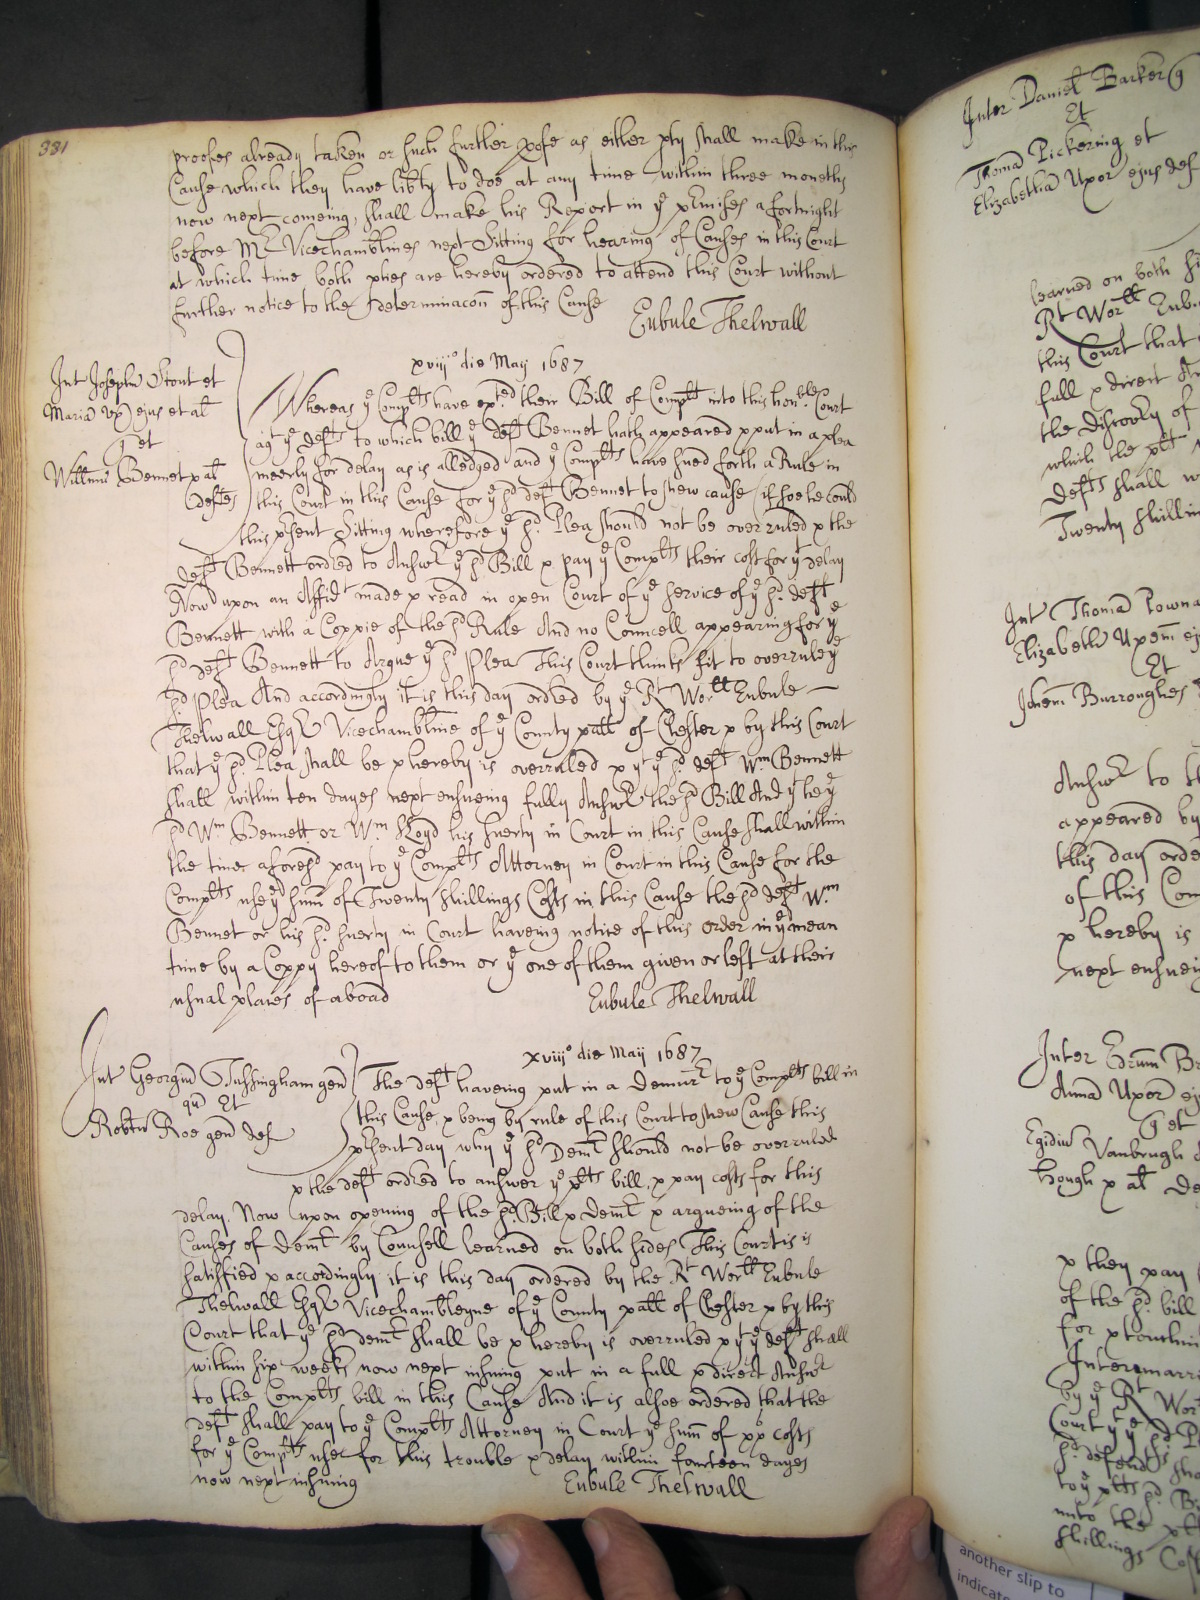 381
proofes already taken or such further p̱ofe as either pty shall make in this
Cause which they have lib̃ty to doe at any time within three moneths
now next comeing, shall make his Report in yᵉ p̱rmises a fortnight
before Mʳ Vicechamblines next Sitting for hearing of Causes in this Court
at which time both pties are hereby ordered to attend this Court without
further notice to the determinacoñ of this Cause
Eubule Thelwall
xviijº die Maij 1687
Int Josephu Stout et
Mariã Ux) ejus et al̃
q̃ et
Willmũ Bennet & al̃
Defᵗᵉˢ
Whereas yᵉ Complᵗˢ have exᵗᵉᵈ their Bill of Complᵗ into this honᵇˡᵉ Court
agᵗ yᵉ Defᵗˢ to which bill yᵉ defᵗ Bennet hath appeared & put in a plea
meerly for delay as is alledged and yᵉ Complᵗˢ have sued forth a Rule in
this Court in this Cause for yᵉ sᵈ defᵗ Bennet to shew cause (if soe he could
this p̱sent Sitting wherefore yᵉ sᵈ Plea should not be overruled & the
defᵗ Bennett ordred to Answʳ yᵉ sᵈ Bill & pay yᵉ Complᵗˢ their cost for yᵉ delay
Now upon an Affidᵗ made & read in open Court of yᵉ service of yᵉ sᵈ defᵗ
Bennett with a Coppie of the sᵈ Rule And no Councell appearing for yᵉ
sᵈ defᵗ Bennett to Argue yᵉ sᵈ Plea This Court thinks fit to overrule yᵉ
sᵈ Plea And accordingly it is this day ordred by yᵉ Rᵗ Worˡˡ Eubule
Thelwall Esqʳ Vicechambline of yᵉ County pall̃ of Chester & by this Court
that yᵉ sᵈ Plea shall be & hereby is overruled & yᵗ yᵉ sᵈ defᵗ Wᵐ Bennett
shall within ten dayes next ensueing fully Answʳ the sᵈ Bill And yᵗ he yᵉ
sᵈ Wᵐ Bennett or Wᵐ Lloyd his suerty in Court in this Cause shall within
the time aforesᵈ pay to yᵉ Complᵗˢ Attorney in Court in this Cause for the
Complᵗˢ use yᵉ sum̃ of Twenty shillings Costs in this Cause the sᵈ defᵗ Wᵐ
Bennet or his sᵈ suerty in Court haveing notice of this order in yᵉ mean
time by a Coppy hereof to them or yᵉ one of them given or left at their
usual places of aboad
Eubule Thelwall
xviijº die Maij 1687
Int Georgiũ Tussingham geñ
qũ Et
Robtũ Roe geñ def
The defᵗ haveing put in a Demurʳ to yᵉ Complᵗˢ bill in
this Cause, & being by rule of this Court to shew Cause this
p̱sent day why yᵉ sᵈ Demʳ should not be overruled
& the defᵗ ordred to answer yᵉ pltˢ bill, & pay costs for this
delay. Now upon opening of the sᵈ Bill & Demʳ & argueing of the
Causes of Demʳ by Counsell learned on both sides This Court is
satisfied & accordingly it is this day ordered by the Rᵗ Worˡˡ Eubule
Thelwall Esqʳ Vicechambleyne of yᵉ County pall̃ of Chester & by this
Court that yᵉ sᵈ demʳ shall be & hereby is overruled & yᵗ yᵉ defᵗ shall
within six weeks now next insuing put in a full & direct Answʳ
to the Complᵗˢ bill in this Cause And it is alsoe ordered that the
defᵗ shall pay to yᵉ Complᵗˢ Attorney in Court yᵉ sum̃ of xxˢ costs
for yᵉ Complᵗˢ use for this trouble & delay within fourteen dayes
now next insuing
Eubule Thelwall
Inter Daniel Barker q
Et
Thomã Pickering et
Elizabetham Uxor ejus def
learned on both si
Rᵗ Worˡˡ Eub
this Court that
full & direct An
the discovʳy of
which the plt
Defᵗˢ shall w
Twenty shillin
Int Thomã Towna
Elizabeth Uxem̃ ej
Et
Johem̃ Burroughes
Answʳ to th
appeared by
this day orde
of this Com
& hereby is
next ensuei
Inter Edrum̃ Br
Annã Uxor ej
q et
Egidiũ Vanbrugh
Hough & al̃ De
& they pay
of the sᵈ bill
for p̱touchin
Intermarri
by yᵉ Rᵗ Wor
Court yᵗ yᵉ sᵈ Pl
sᵈ defendᵗˢ sha
to yᵉ pltˢ sᵈ Bi
unto the plt
shillings Cost
another slip to
indicate